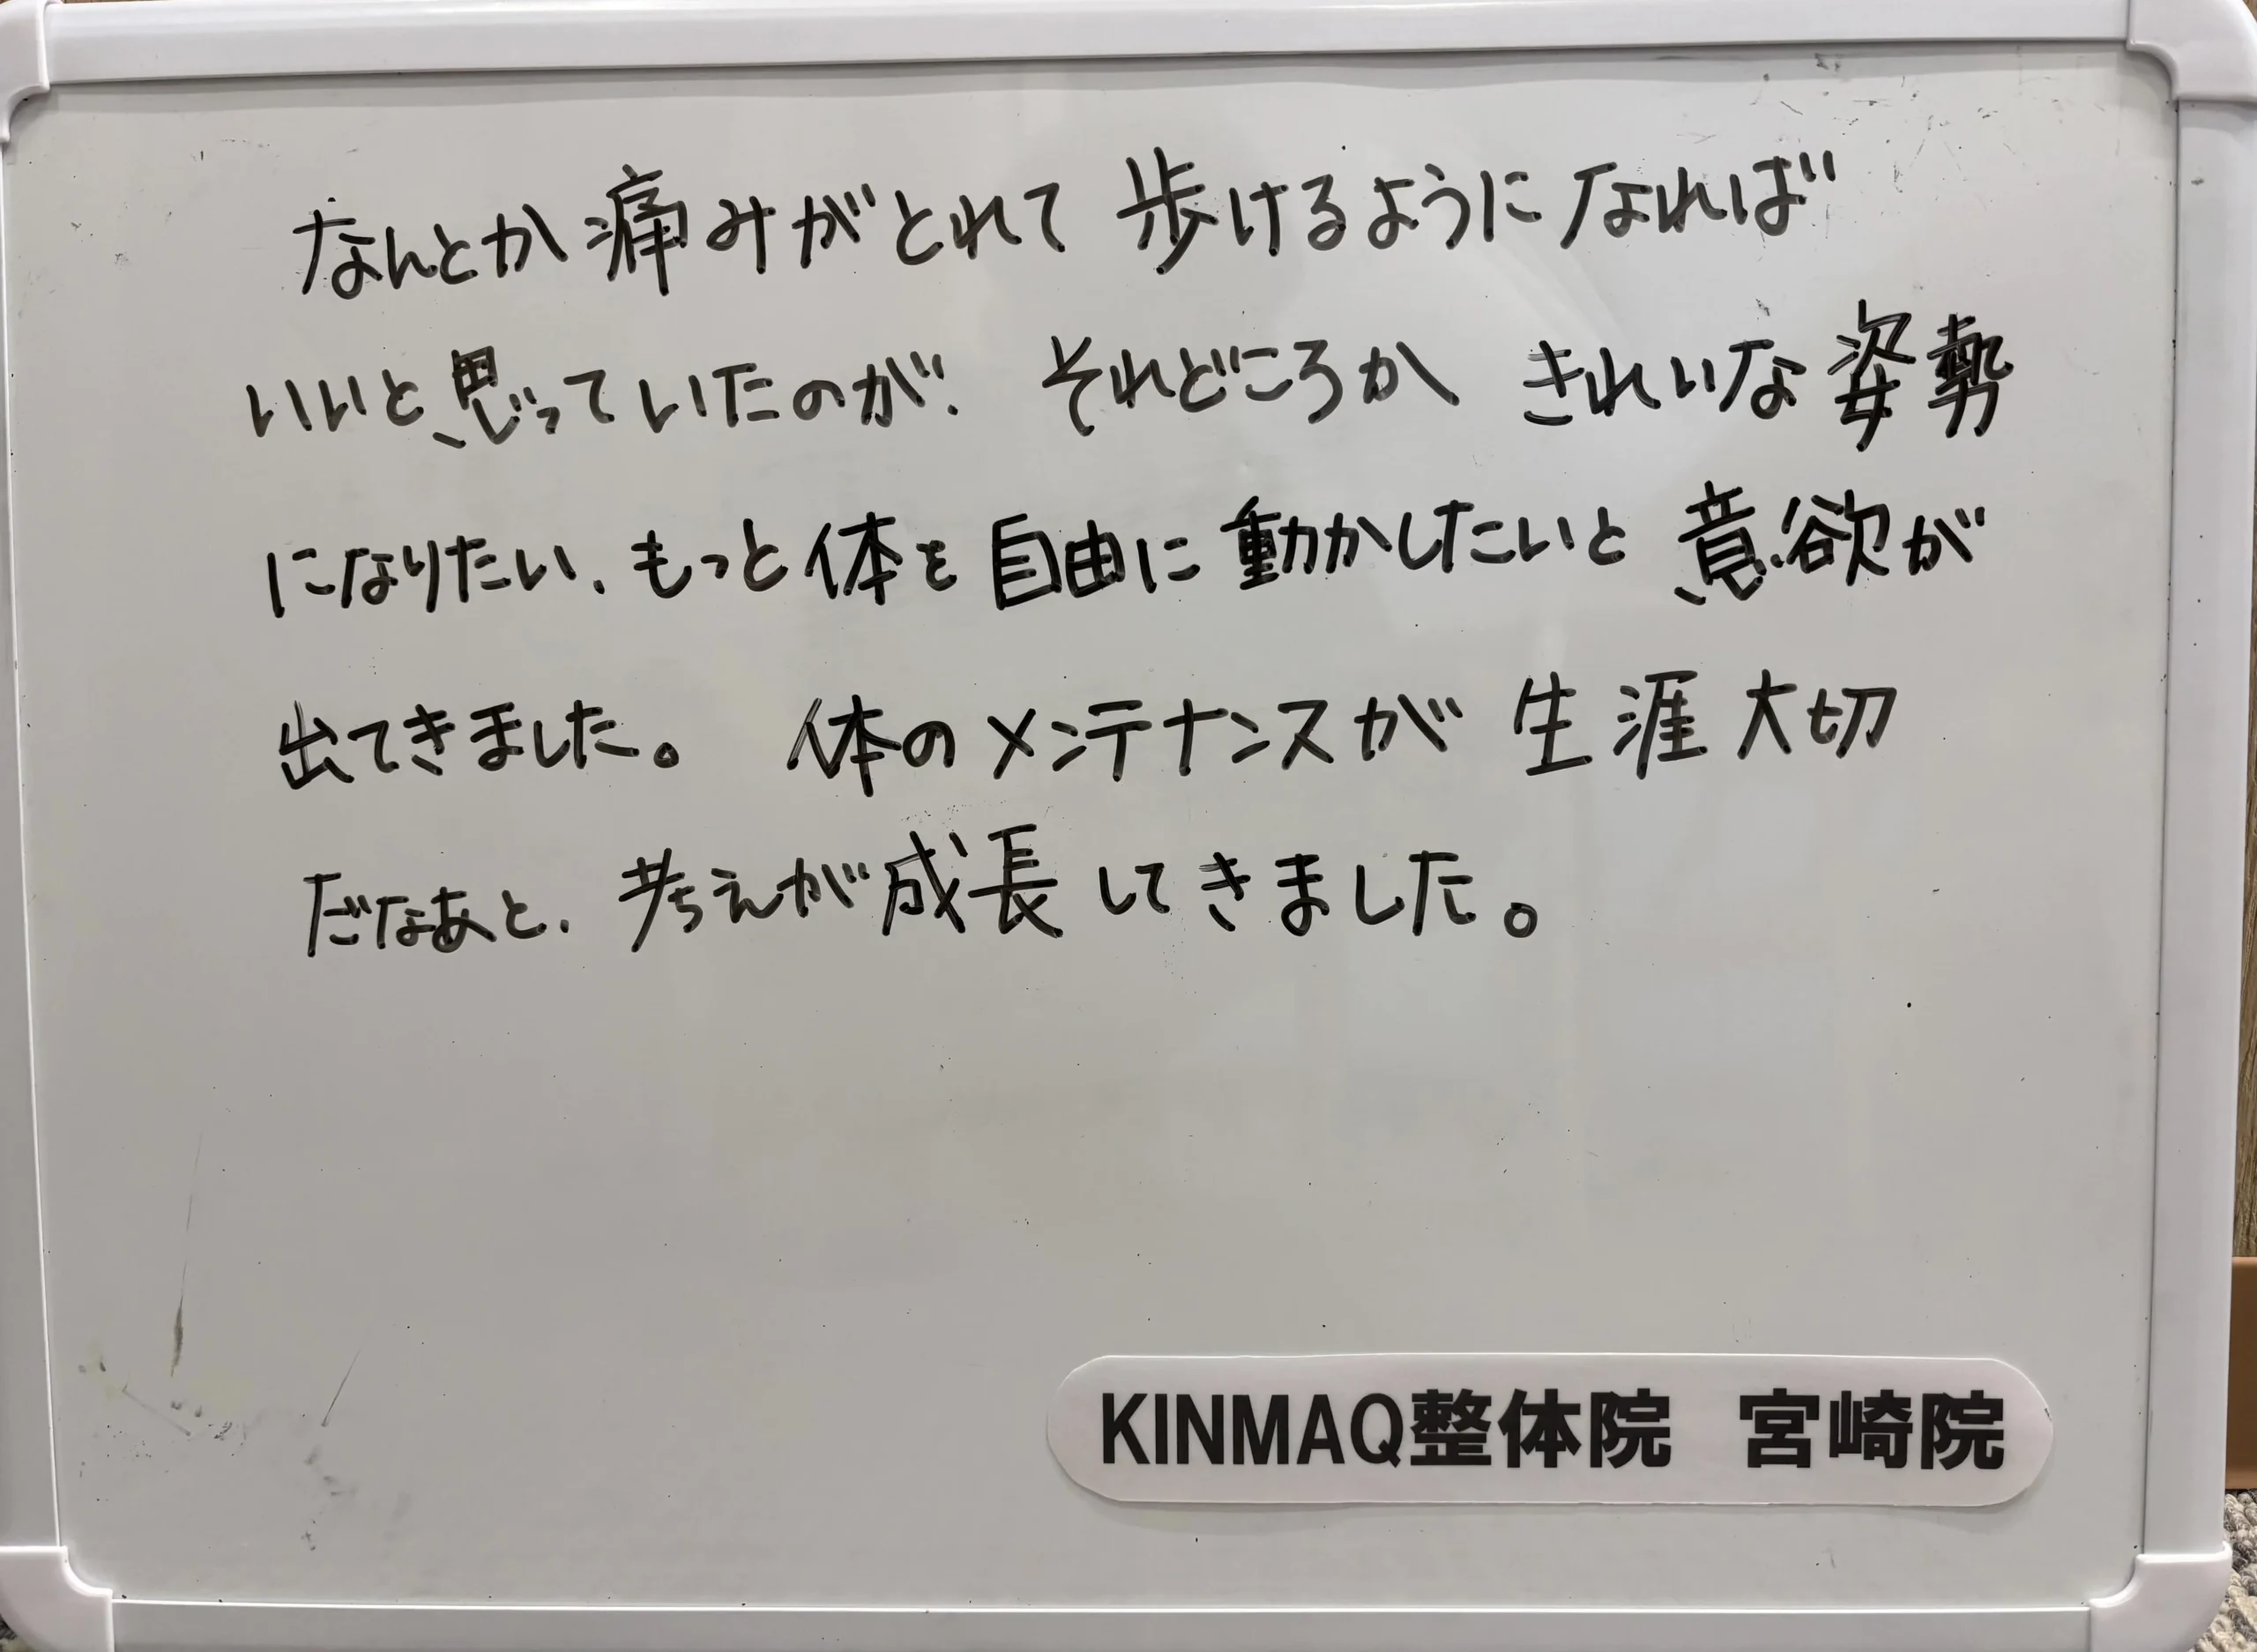 なんとか痛みがとれて 歩けるようになれば
いいと思っていたのが、 それどころか きれいな姿勢
になりたい、もっと体を自由に動かしたいと意欲が
出てきました。 体のメンテナンスが 生涯大切
だなあと、考えが成長してきました。
KINMAQ整体院 宮崎院